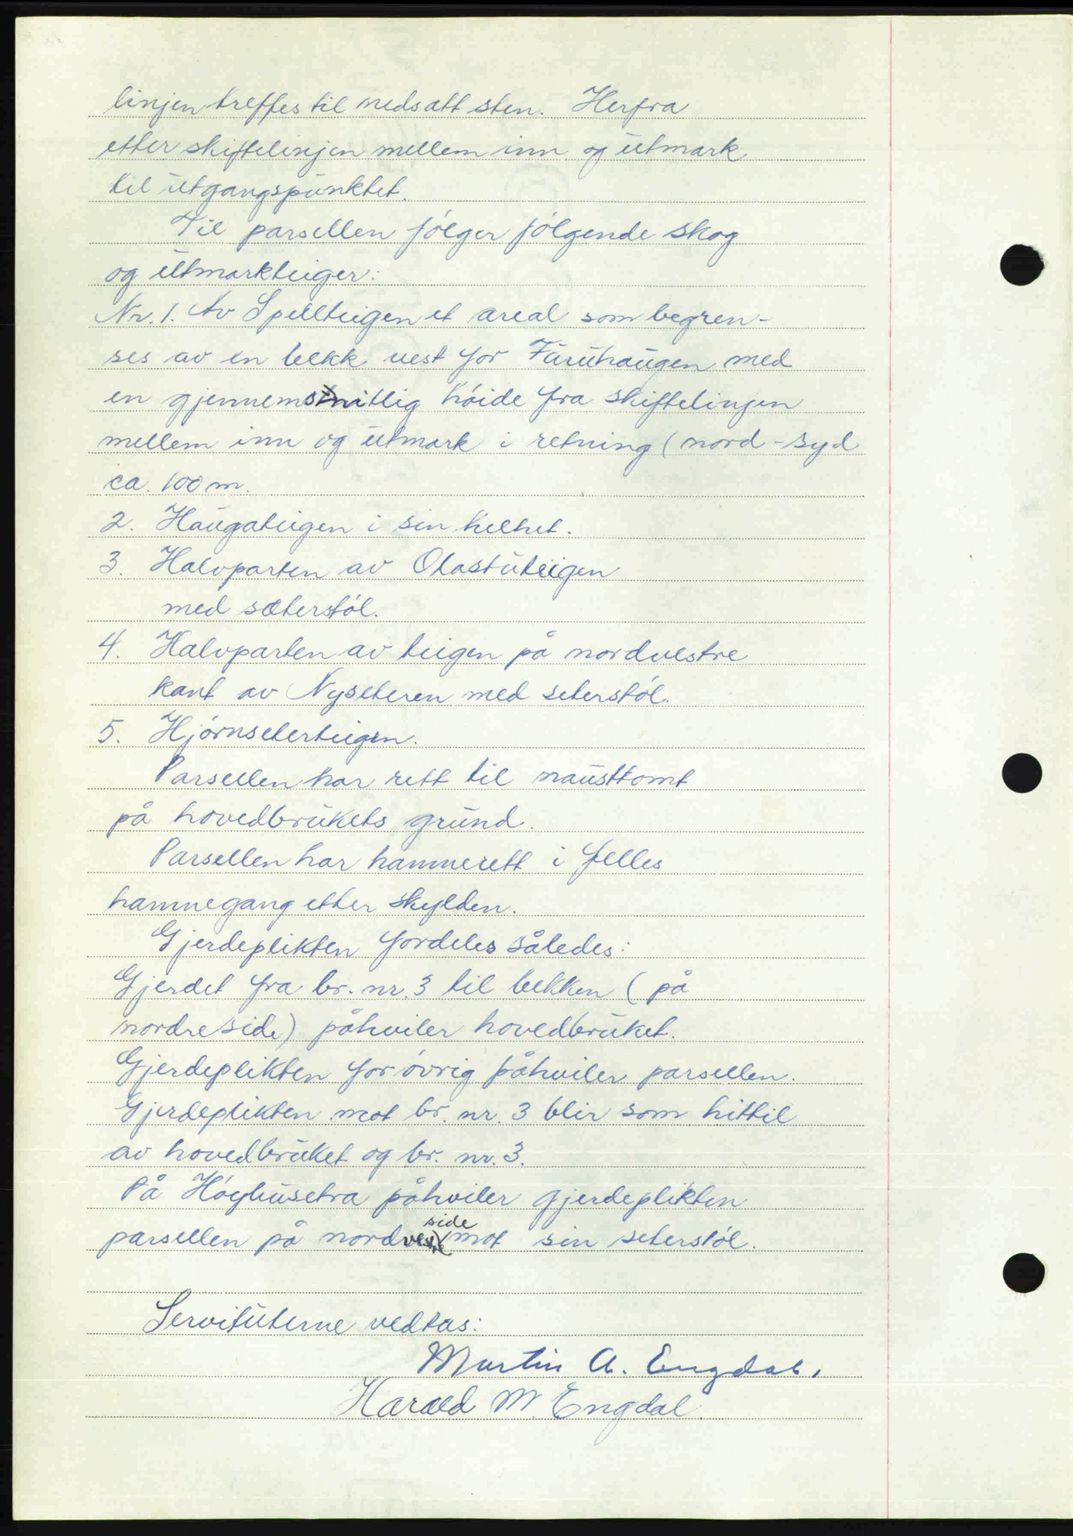 linjen treffes til nedsatt sten. Herfra
etter skiftelinjen mellem inn og utmark
til utgangspunktet.
Til parsellen følger følgende skog
og utmarkteiger:
Nr. 1. Av Spellteigen et areal som begren-
ses av en bekk vest for Furuhaugen med
en gjennemsnitlig høide fra skiftelinjen
mellem inn og utmark i retning (nord-syd
ca. 100 m.
2. Haugateigen i sin helhet.
3. Halvparten av Olastuteigen
med sæterstøl.
4. Halvparten av teigen på nordvestre
kant av Nyseteren med seterstøl.
5. Hjørnseterteigen.
Parsellen har rett til nausttomt
på hovedbrukets grund.
Parsellen har hamnerett i felles
hamnegang etter skylden.
Gjerdeplikten fordeles således:
Gjerdet fra br. nr. 3 til bekken (på
nordre side) påhviler hovedbruket.
Gjerdeplikten forøvrig påhviler parsellen.
Gjerdeplikten mot br. nr. 3 blir som hittil
av hovedbruket og br. nr. 3.
På Høghusetra påhviler gjerdeplikten
side
parsellen på nordvestre mot sin seterstøl.
Servituterne vedtas:
Martin A. Engdal.
Harald M. Engdal.